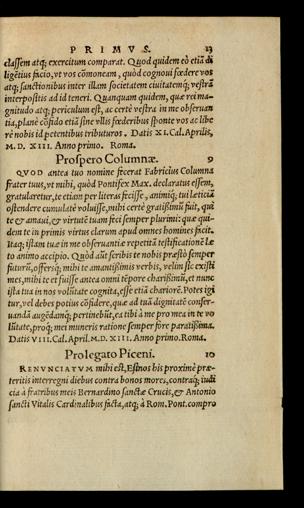 PRIMVS. 13
classem atq; exercitum comparat. Quod quidem eò etiā di
ligẽtius facio, vt vos cõmoneam, quòd cognoui fœdere vos
atq; sanctionibus inter illam societatem ciuitatemq; vestrā
interpositis ad id teneri. Quanquam quidem, quæ rei ma-
gnitudo atq; periculum est, ac certè vestra in me obseruan
tia, planè cõfido etiā sine vllis fœderibus spõnte vos ac libe
rè nobis id petentibus tributuros. Datis XI. Cal. Aprilis,
M. D. XIII. Anno primo. Roma.
Prospero Columnæ. 9
QVOD antea tuo nomine fecerat Fabricius Columna
frater tuus, vt mihi, quòd Pontifex Max. declaratus essem,
gratularetur, te etiam per literas fecisse, animiq; tui lætitiā
ostendere cumulatè voluisse, mihi certè gratissimũ fuit, qui
te & amaui, & virtutẽ tuam feci semper plurimi: quæ qui-
dem te in primis virtus clarum apud omnes homines facit.
Itaq; istam tuā in me obseruantiæ repetitā testificationẽ læ
to animo accipio. Quòd aũt scribis te nobis præstò semper
futurũ, offersq; mihi te amantissimis verbis, velim sic existi
mes, mihi te et fuisse antea omni tẽpore charissimũ, et nunc
ista tua in nos volũtate cognita, esse etiā chariorẽ. Potes igi
tur, vel debes potius cõfidere, quæ ad tuā dignitatẽ conser-
uandā augẽdamq; pertinebũt, ea tibi à me pro mea in te vo
lũtate, proq; mei muneris ratione semper fore paratissima.
Datis VIII. Cal. April. M. D. XIII. Anno primo. Roma.
Prolegato Piceni. 10
RENVNCIATVM mihi est, Esinos his proximè præ-
teritis interregni diebus contra bonos mores, contraq; iudi
cia à fratribus meis Bernardino sanctæ Crucis, & Antonio
sancti Vitalis Cardinalibus facta, atq; à Rom. Pont. compro